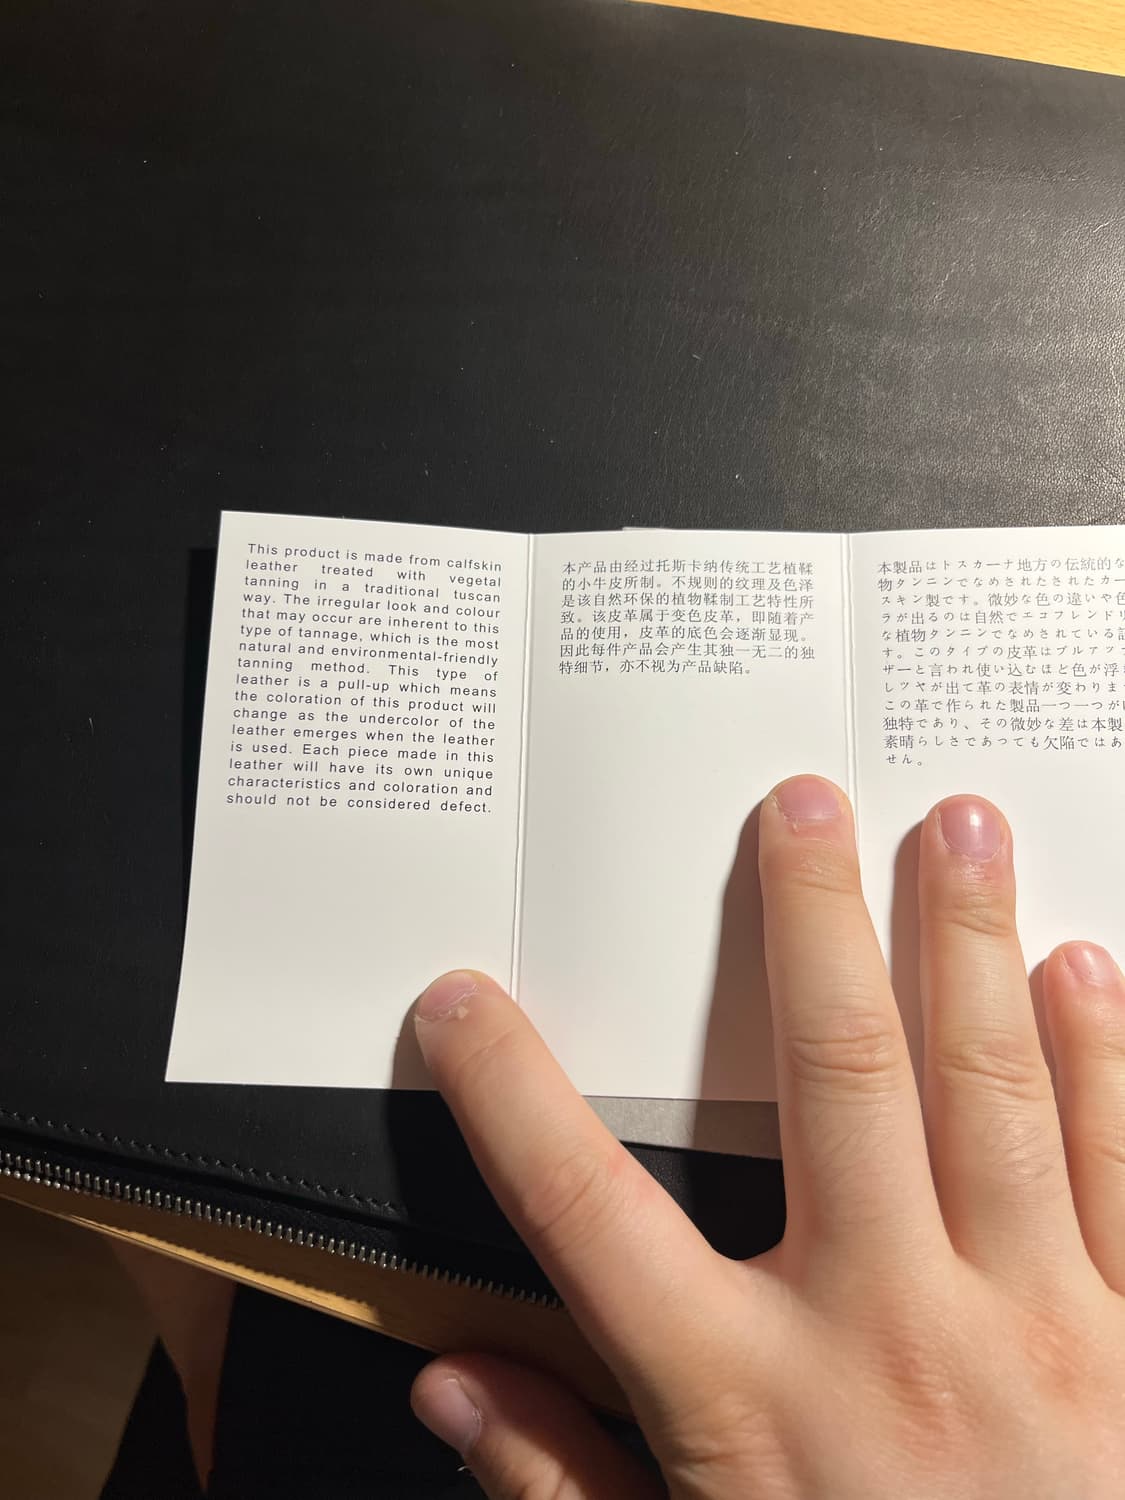 This product is made from calfskin
leather treated with vegetal
tanning in a traditional tuscan
way. The irregular look and colour
that may occur are inherent to this
type of tannage, which is the most
natural and environmental-friendly
tanning method. This type of
leather is a pull-up which means
the coloration of this product will
change as the undercolor of the
leather emerges when the leather
is used. Each piece made in this
leather will have its own unique
characteristics and coloration and
should not be considered defect.
本产品由经过托斯卡纳传统工艺植鞣
的小牛皮所制。不规则的纹理及色泽
是该自然环保的植物鞣制工艺特性所
致。该皮革属于变色皮革，即随着产
品的使用，皮革的底色会逐渐显现。
因此每件产品会产生其独一无二的独
特细节，亦不视为产品缺陷。
本製品はトスカーナ地方の伝統的な
物タンニンでなめされたされたカー
スキン製です。微妙な色の違いや色
ラが出るのは自然でエコフレンドリ
な植物タンニンでなめされている証
す。このタイプの皮革はプルアップ
ザーと言われ使い込むほど色が浮き
しツヤが出て革の表情が変わりま
この革で作られた製品一つ一つが
独特であり、その微妙な差は本製
素晴らしさであっても欠陥ではあ
せん。